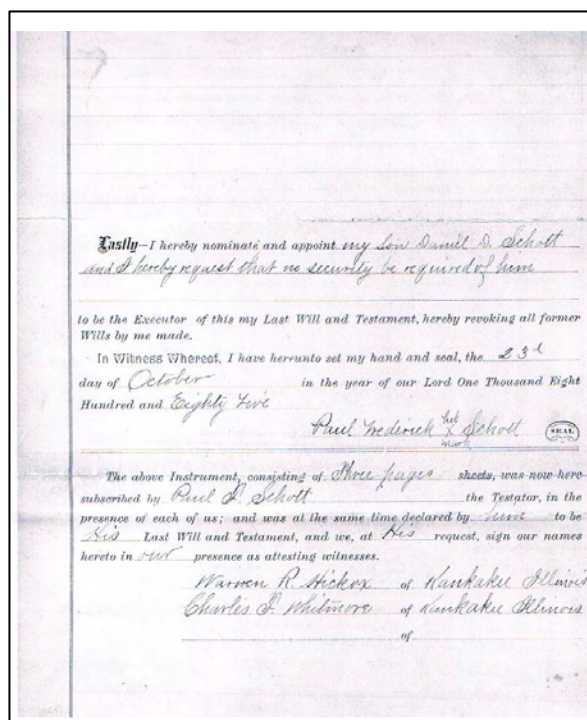 Lastly—I hereby nominate and appoint my son Daniel D. Schott
and I hereby request that no security be required of him
to be the Executor of this my Last Will and Testament, hereby revoking all former
Wills by me made.
In Witness Whereof, I have hereunto set my hand and seal, the 23d
day of October in the year of our Lord One Thousand Eight
Hundred and Eighty Five
his
Paul Frederick x Schott SEAL
mark
The above Instrument, consisting of Three pages sheets, was now here
subscribed by Paul F. Schott the Testator, in the
presence of each of us; and was at the same time declared by him to be
His Last Will and Testament, and we, at His request, sign our names
hereto in our presence as attesting witnesses.
Warren R. Hickox of Kankakee Illinois
Charles F. Whitmore of Kankakee Illinois
of